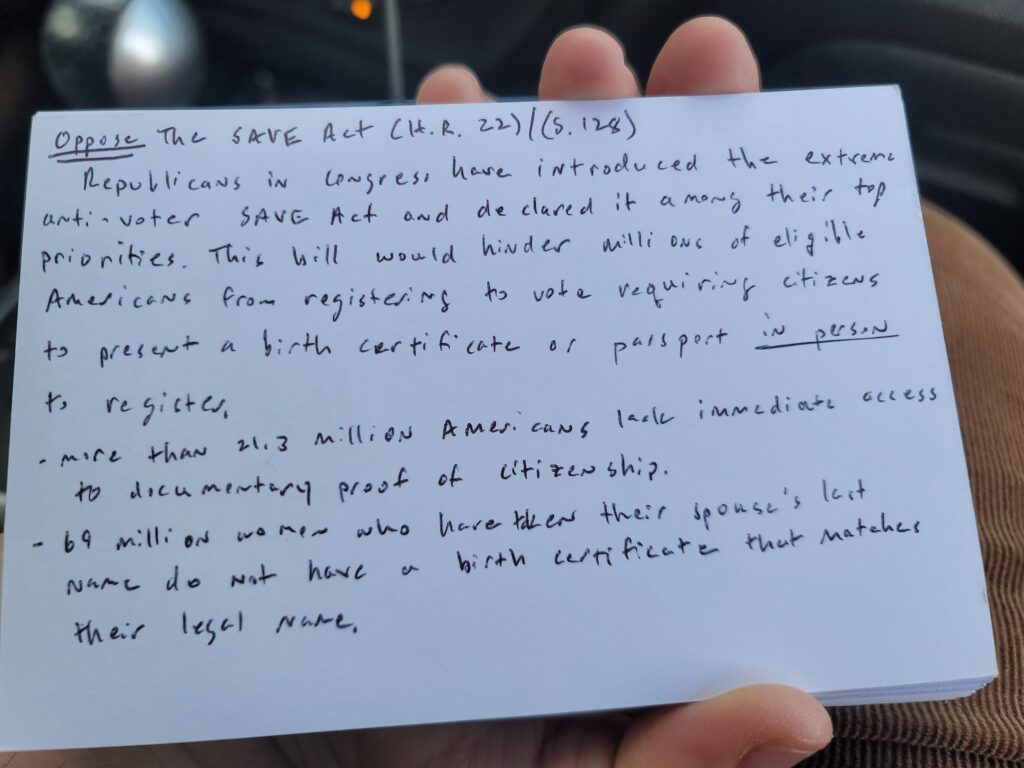 Oppose The SAVE Act (H.R. 22)/(S. 128)
Republicans in Congress have introduced the extreme
anti-voter SAVE Act and declared it among their top
priorities. This bill would hinder millions of eligible
Americans from registering to vote requiring citizens
to present a birth certificate or passport in person
to register.
- more than 21.3 million Americans lack immediate access
to documentary proof of citizenship.
- 69 million women who have taken their spouse's last
name do not have a birth certificate that matches
their legal name.